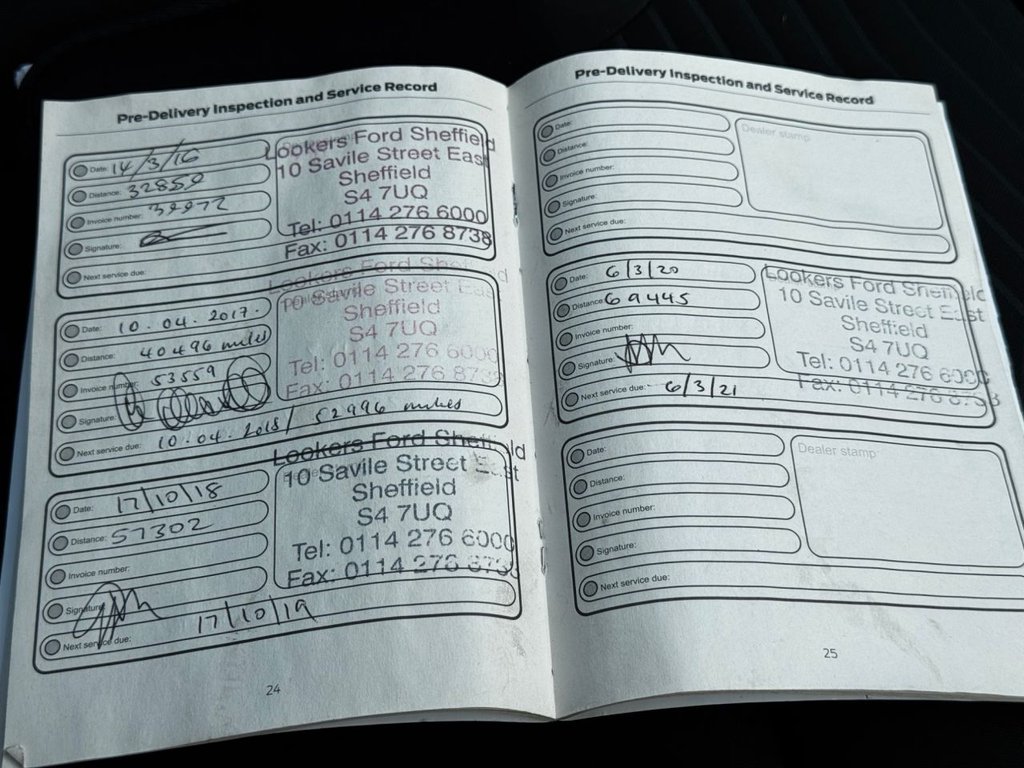 Pre-Delivery Inspection and Service Record
Date: 14/3/16
Distance: 32859
Invoice number: 39972
Signature:
Next service due:
Lookers Ford Sheffield
10 Savile Street East
Sheffield
S4 7UQ
Tel: 0114 276 6000
Fax: 0114 276 8738
Date: 10.04.2017.
Distance: 40496 miles
Invoice number: 53559
Signature:
Next service due: 10.04.2018/ 52996 miles
Lookers Ford Sheffield
10 Savile Street East
Sheffield
S4 7UQ
Tel: 0114 276 6000
Fax: 0114 276 8738
Date: 17/10/18
Distance: 57302
Invoice number:
Signature:
Next service due: 17/10/19
Lookers Ford Sheffield
10 Savile Street East
Sheffield
S4 7UQ
Tel: 0114 276 6000
Fax: 0114 276 8738
24
Pre-Delivery Inspection and Service Record
Date:
Distance:
Invoice number:
Signature:
Next service due:
Dealer stamp
Date: 6/3/20
Distance: 69445
Invoice number:
Signature:
Next service due: 6/3/21
Lookers Ford Sheffield
10 Savile Street East
Sheffield
S4 7UQ
Tel: 0114 276 6000
Fax: 0114 276 8738
Date:
Distance:
Invoice number:
Signature:
Next service due:
Dealer stamp
25